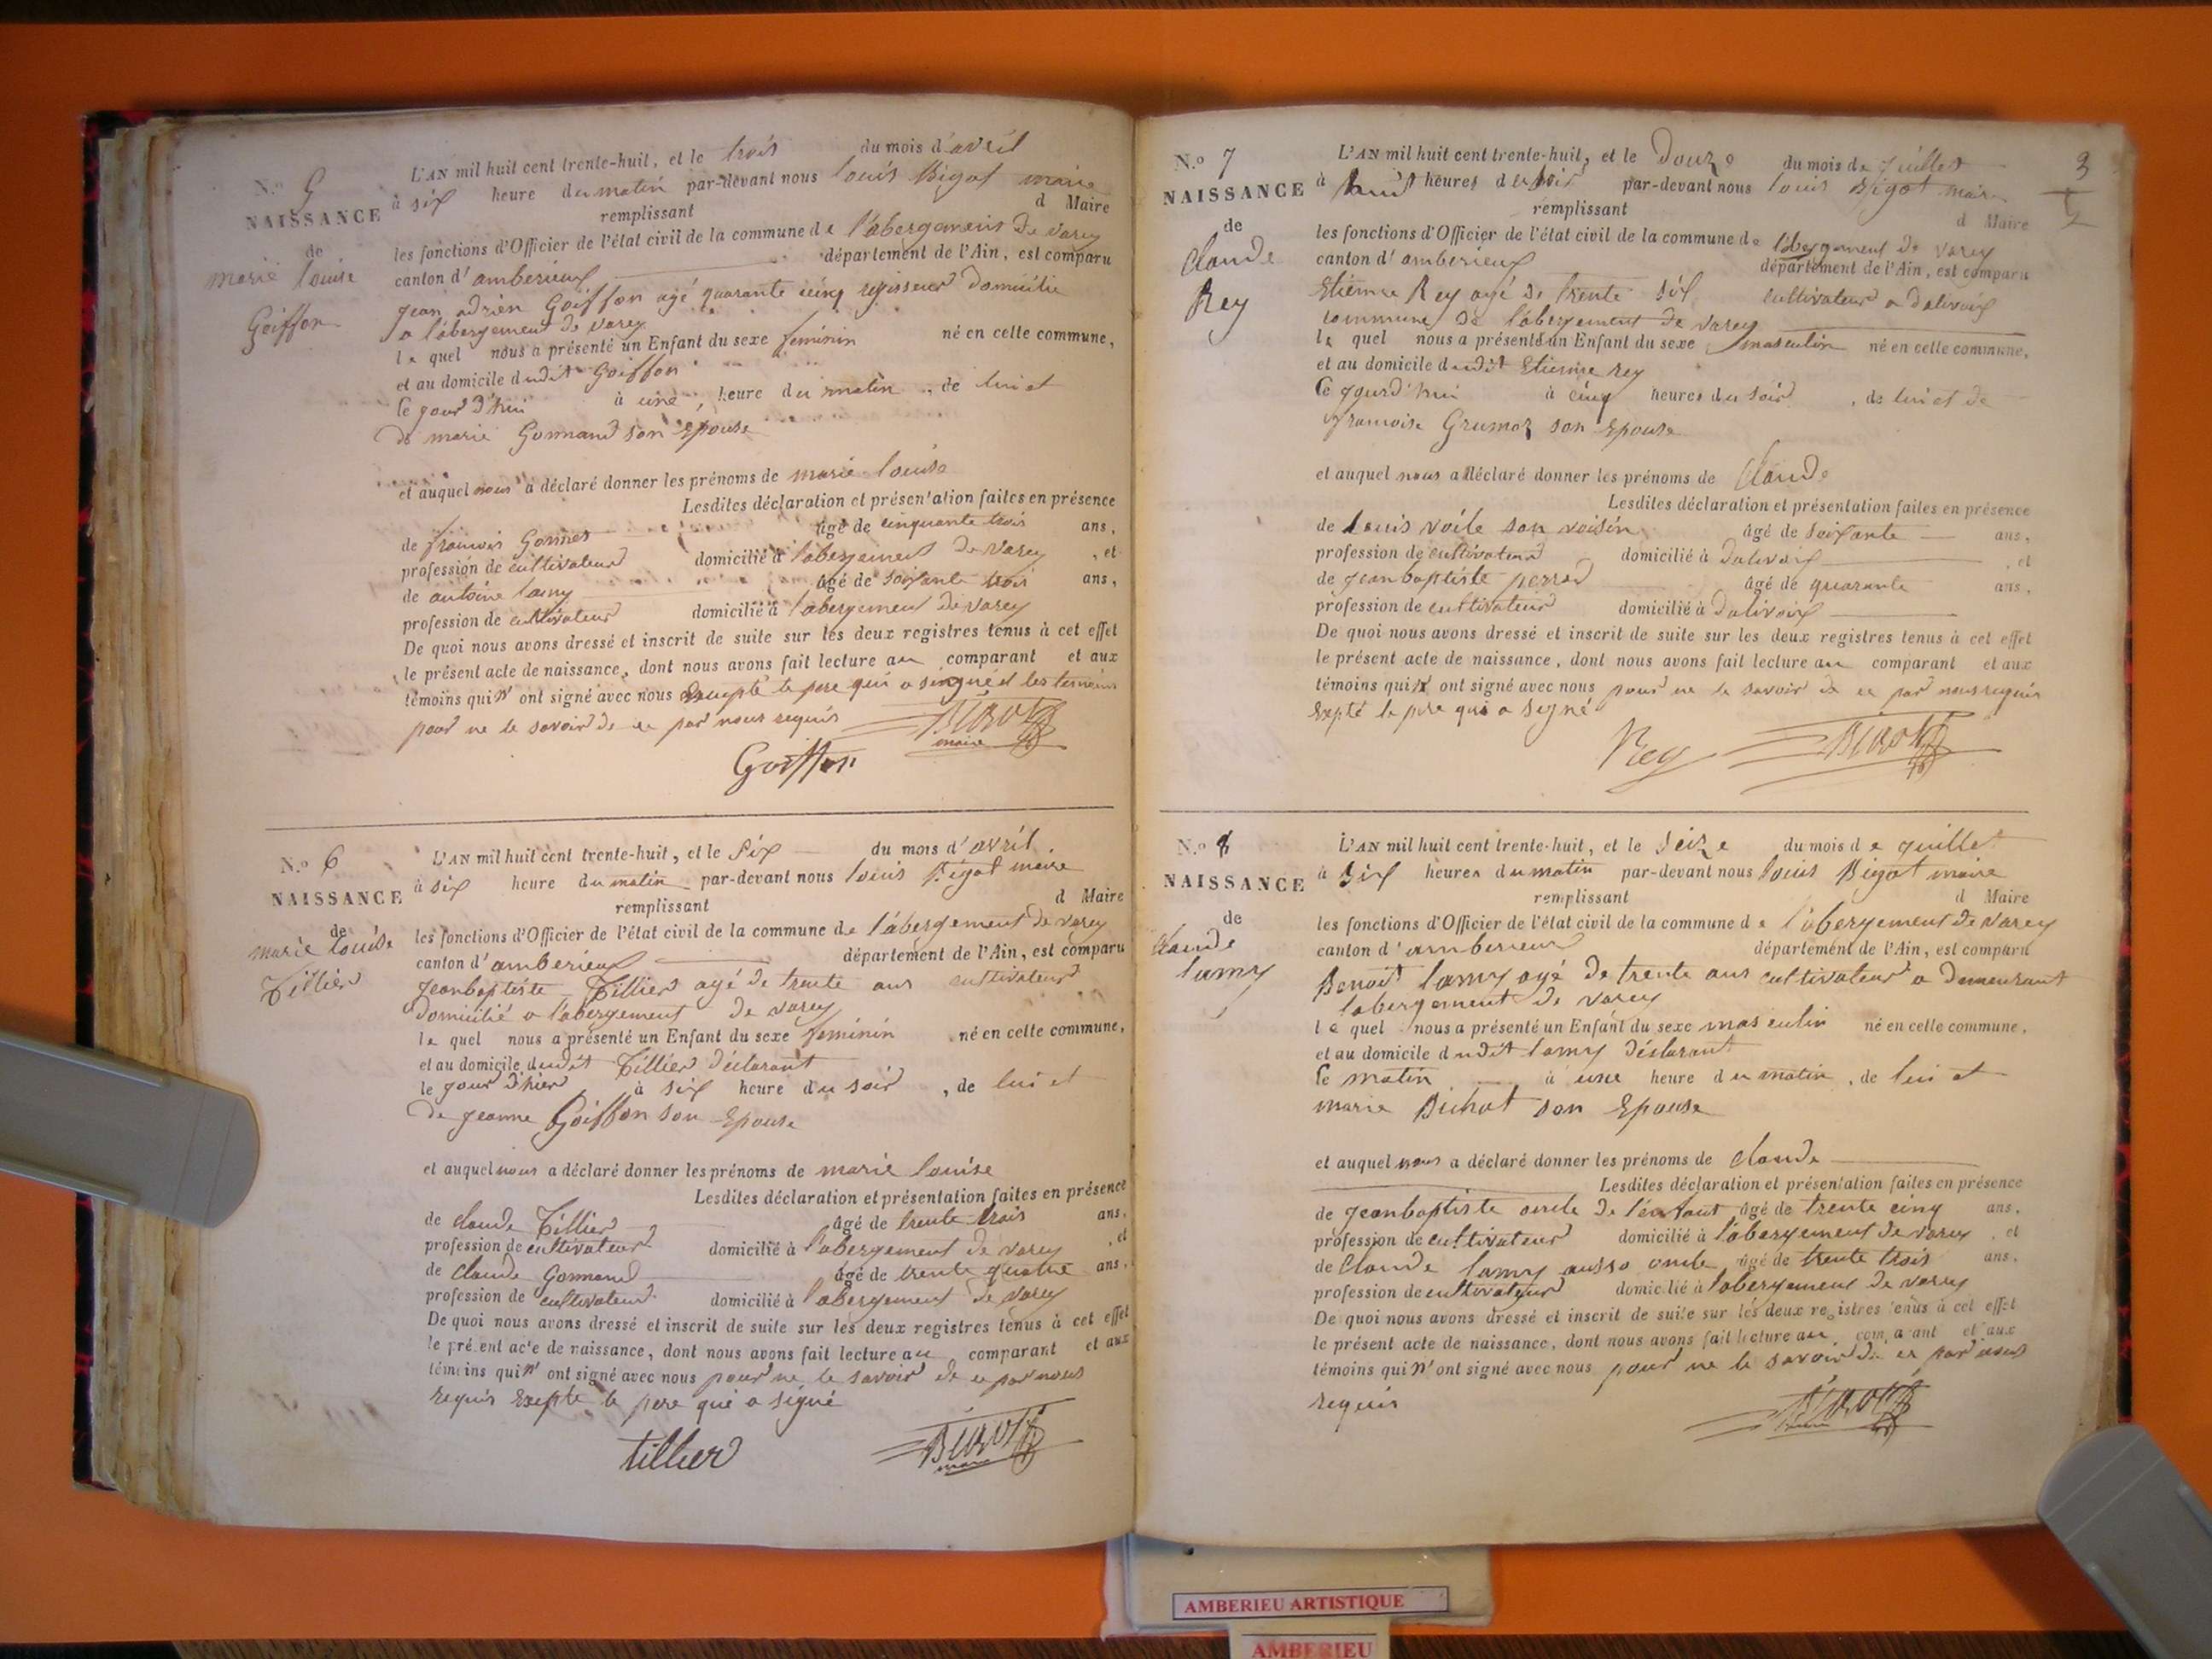 N.o 5
NAISSANCE
de
marie louise
Goiffon
L'AN mil huit cent trente-huit, et le trois du mois d'avril
à six heure du matin par-devant nous louis Bigot maire
remplissant d Maire
les fonctions d'Officier de l'état civil de la commune de l'abergement de varey
canton d'amberieux département de l'Ain, est comparu
jean adrien Goiffon agé quarante cinq regisseur domicilié
a l'abergement de varey
le quel nous a présenté un Enfant du sexe feminin né en cette commune,
et au domicile dudit Goiffon
le jour d'hui à une heure du matin, de lui et
de marie Gonnand son Epouse
et auquel nous a déclaré donner les prénoms de marie louise
Lesdites déclaration et présentation faites en présence
de francois Gonnet âgé de cinquante trois ans,
profession de cultivateur domicilié à l'abergement de varey, et
de antoine lamy âgé de soixante trois ans,
profession de cultivateur domicilié à l'abergement de varey
De quoi nous avons dressé et inscrit de suite sur les deux registres tenus à cet effet
le présent acte de naissance, dont nous avons fait lecture au comparant et aux
témoins qui n'ont signé avec nous excepté le pere qui a singné et les temoins
pour ne le savoir de ce par nous requis
Bigot
maire
Goiffon
N.o 6
NAISSANCE
de
marie louise
Tillier
L'AN mil huit cent trente-huit, et le six du mois d'avril
à six heure du matin par-devant nous louis Bigot maire
remplissant d Maire
les fonctions d'Officier de l'état civil de la commune de l'abergement de varey
canton d'amberieux département de l'Ain, est comparu
jeanbaptiste Tillier agé de trente ans cultivateur
domicilié a l'abergement de varey
le quel nous a présenté un Enfant du sexe feminin né en cette commune,
et au domicile dudit Tillier déclarant
le jour d'hier à six heure du soir, de lui et
de jeanne Goiffon son Epouse
et auquel nous a déclaré donner les prénoms de marie louise
Lesdites déclaration et présentation faites en présence
de claude Tillier âgé de trente trois ans,
profession de cultivateur domicilié à l'abergement de varey, et
de claude Gonnand âgé de trente quatre ans,
profession de cultivateur domicilié à l'abergement de varey
De quoi nous avons dressé et inscrit de suite sur les deux registres tenus à cet effet
le présent acte de naissance, dont nous avons fait lecture au comparant et aux
témoins qui n'ont signé avec nous pour ne le savoir de ce par nous
requis Exepte le pere qui a signé
tillier
Bigot
maire
3
N.o 7
NAISSANCE
de
Claude
Rey
L'AN mil huit cent trente-huit, et le Douze du mois de juillet
à huit heures du soir par-devant nous louis Bigot maire
remplissant d Maire
les fonctions d'Officier de l'état civil de la commune de l'abergement de varey
canton d'amberieux département de l'Ain, est comparu
Etienne Rey agé de trente six cultivateur a dalivoix
commune de l'abergement de varey
le quel nous a présenté un Enfant du sexe masculin né en cette commune,
et au domicile dudit Etienne rey
Ce jourd'hui à cinq heures du soir, de lui et de
francoise Grumoz son Epouse
et auquel nous a déclaré donner les prénoms de Claude
Lesdites déclaration et présentation faites en présence
de Louis voile son voisin âgé de soixante ans,
profession de cultivateur domicilié à dalivoix, et
de jeanbaptiste perrod âgé de quarante ans,
profession de cultivateur domicilié à dalivoix
De quoi nous avons dressé et inscrit de suite sur les deux registres tenus à cet effet
le présent acte de naissance, dont nous avons fait lecture au comparant et aux
témoins qui n'ont signé avec nous pour ne le savoir de ce par nous requis
Expté le pere qui a signé
Rey
Bigot
N.o 8
NAISSANCE
de
claude
lamy
L'AN mil huit cent trente-huit, et le seize du mois de juillet
à six heures du matin par-devant nous louis Bigot maire
remplissant d Maire
les fonctions d'Officier de l'état civil de la commune de l'abergement de varey
canton d'amberieux département de l'Ain, est comparu
Benoit lamy agé de trente ans cultivateur a demeurant
labergement de varey
le quel nous a présenté un Enfant du sexe masculin né en cette commune,
et au domicile dudit lamy déclarant
le matin à une heure du matin, de lui et
marie Buhot son Epouse
et auquel nous a déclaré donner les prénoms de claude
Lesdites déclaration et présentation faites en présence
de jeanbaptiste oncle de l'enfant âgé de trente cinq ans,
profession de cultivateur domicilié à l'abergement de varey, et
de Claude lamy ausso oncle âgé de trente trois ans,
profession de cultivateur domicilié à l'abergement de varey
De quoi nous avons dressé et inscrit de suite sur les deux registres tenus à cet effet
le présent acte de naissance, dont nous avons fait lecture au comparant et aux
témoins qui n'ont signé avec nous pour ne le savoir de ce par nous
requis
Bigot
AMBERIEU ARTISTIQUE
AMBERIEU